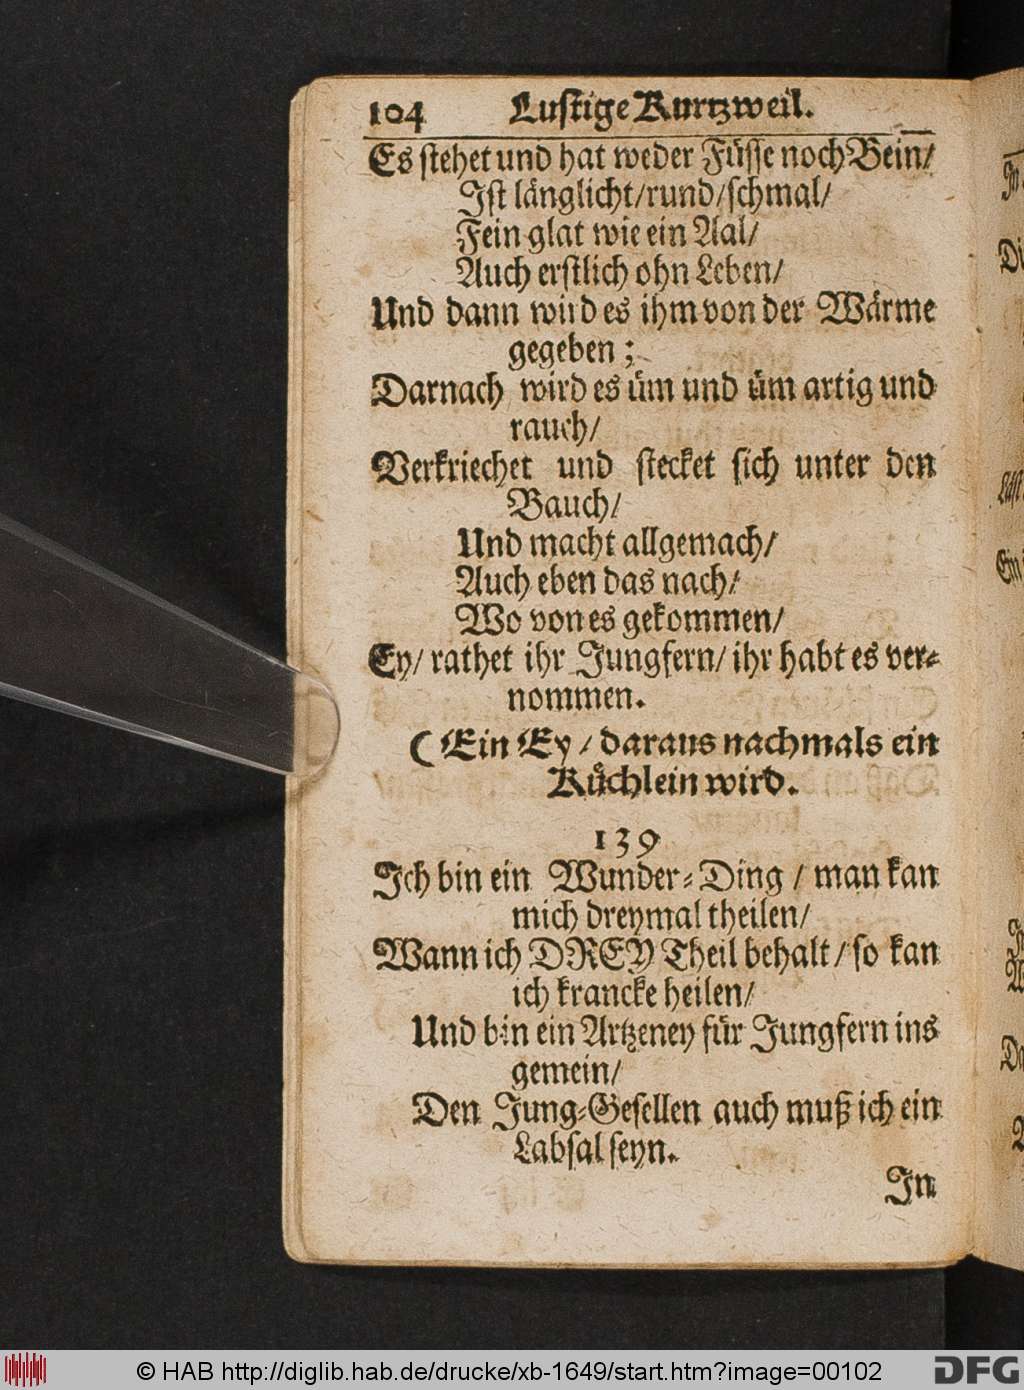 104 Lustige Kurtzweil.
Es stehet und hat weder Füsse noch Bein/
Ist länglicht/rund/schmal/
Fein glat wie ein Aal/
Auch erstlich ohn Leben/
Und dann wird es ihm von der Wärme
gegeben;
Darnach wird es üm und üm artig und
rauch/
Verkriechet und stecket sich unter den
Bauch/
Und macht allgemach/
Auch eben das nach/
Wo von es gekommen/
Ey/ rathet ihr Jungfern/ ihr habt es ver-
nommen.
(Ein Ey / daraus nachmals ein
Küchlein wird.
139
Ich bin ein Wunder-Ding / man kan
mich dreymal theilen/
Wann ich DREY Theil behalt/ so kan
ich krancke heilen/
Und bin ein Artzeney für Jungfern ins
gemein/
Den Jung-Gesellen auch muß ich ein
Labsal seyn.
In
© HAB http://diglib.hab.de/drucke/xb-1649/start.htm?image=00102
DFG